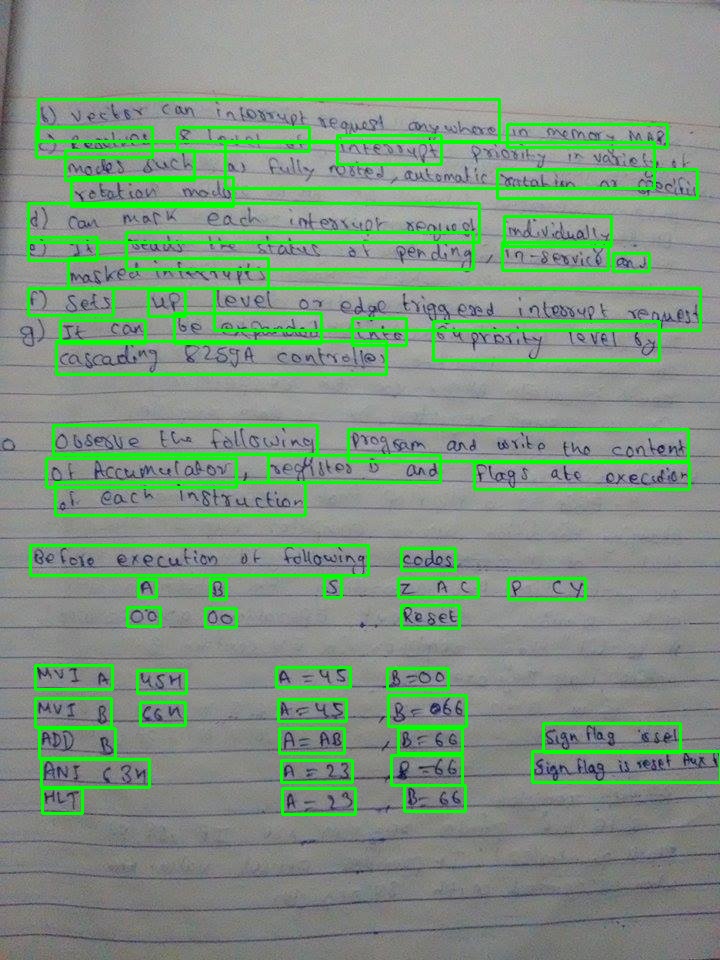 b) Vector can interrupt request anywhere in memory MAP
c) Resolves 8 level of interrupt priority in variety of
modes such as fully nested, automatic rotation or specific
rotation mode
d) Can mask each interrupt request individually
e) It reads the status of pending, in-service and
masked interrupts
f) Sets up level or edge triggered interrupt request
g) It can be expanded into 64 priority level by
cascading 8259A controller
Observe the following program and write the content
of Accumulator, register B and Flags ate execution
of each instruction
Before execution of following codes
A B S Z AC P CY
00 00 Reset
MVI A 45H A = 45, B=00
MVI B 66H A = 45, B = 066
ADD B A = AB, B = 66 Sign flag is set
ANI 63H A = 23, B = 66 Sign flag is reset Aux
HLT A = 23, B = 66